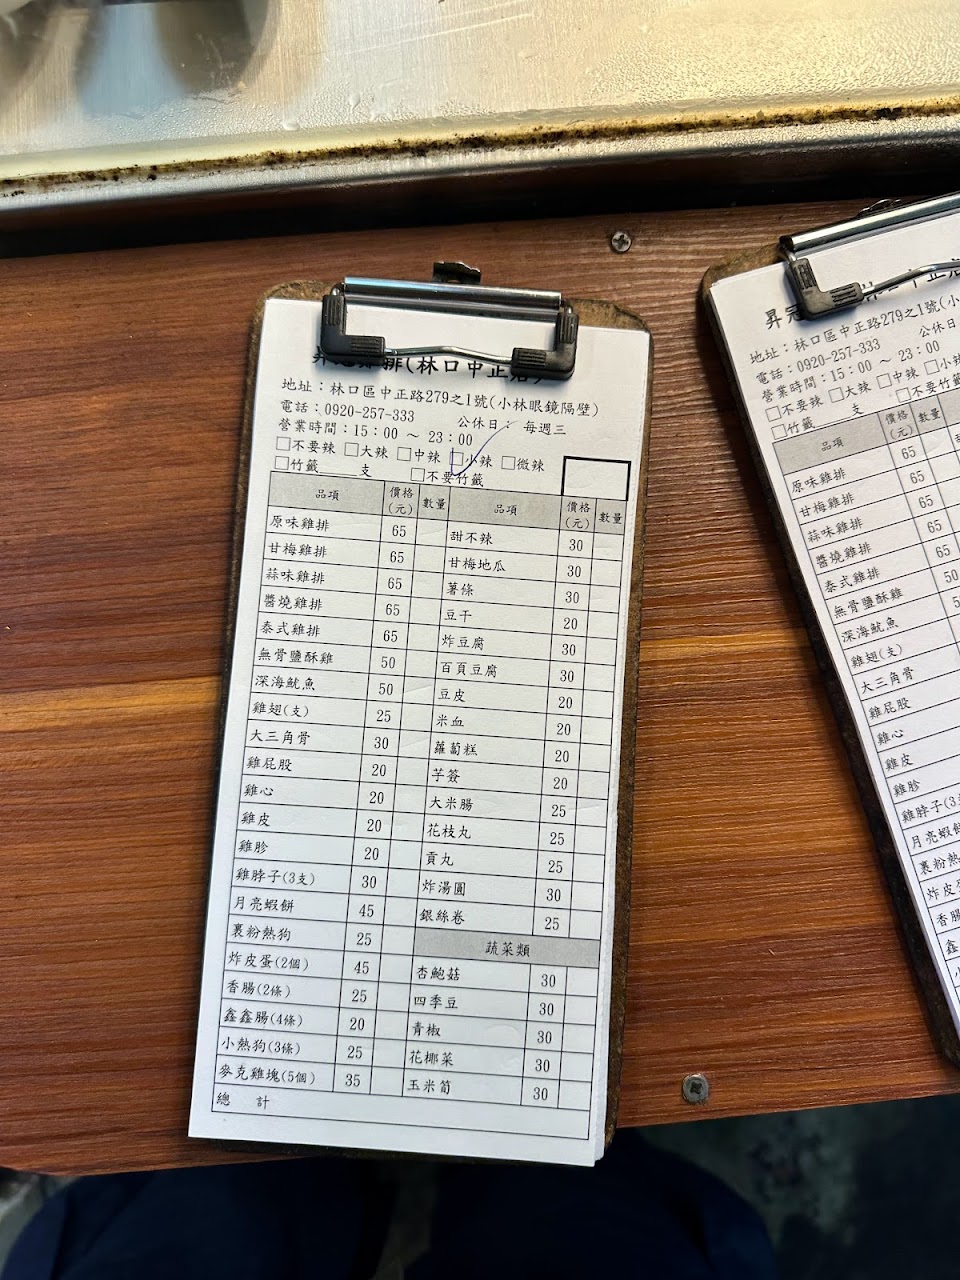 昇冠雞排(林口中正店)
地址：林口區中正路279之1號(小林眼鏡隔壁)
電話：0920-257-333 公休日： 每週三
營業時間：15：00 ～ 23：00
□不要辣 □大辣 □中辣 □小辣 □微辣
□竹籤 支 □不要竹籤
品項 價格(元) 數量 品項 價格(元) 數量
原味雞排 65 甜不辣 30
甘梅雞排 65 甘梅地瓜 30
蒜味雞排 65 薯條 30
醬燒雞排 65 豆干 20
泰式雞排 65 炸豆腐 30
無骨鹽酥雞 50 百頁豆腐 30
深海魷魚 50 豆皮 20
雞翅(支) 25 米血 20
大三角骨 30 蘿蔔糕 20
雞屁股 20 芋簽 20
雞心 20 大米腸 25
雞皮 20 花枝丸 25
雞胗 20 貢丸 25
雞脖子(3支) 30 炸湯圓 30
月亮蝦餅 45 銀絲卷 25
裹粉熱狗 25 蔬菜類
炸皮蛋(2個) 45 杏鮑菇 30
香腸(2條) 25 四季豆 30
鑫鑫腸(4條) 20 青椒 30
小熱狗(3條) 25 花椰菜 30
麥克雞塊(5個) 35 玉米筍 30
總 計
昇冠
地址：林口區中正路279之1號(小
電話：0920-257-333 公休日
營業時間：15：00 ～ 23：00
□不要辣 □大辣 □中辣 □小辣
□竹籤 支 □不要竹籤
品項 價格(元) 數量
原味雞排 65
甘梅雞排 65
蒜味雞排 65
醬燒雞排 65
泰式雞排 65
無骨鹽酥雞 50
深海魷魚
雞翅(支)
大三角骨
雞屁股
雞心
雞皮
雞胗
雞脖子(3
月亮蝦餅
裹粉熱
炸皮蛋
香腸
鑫